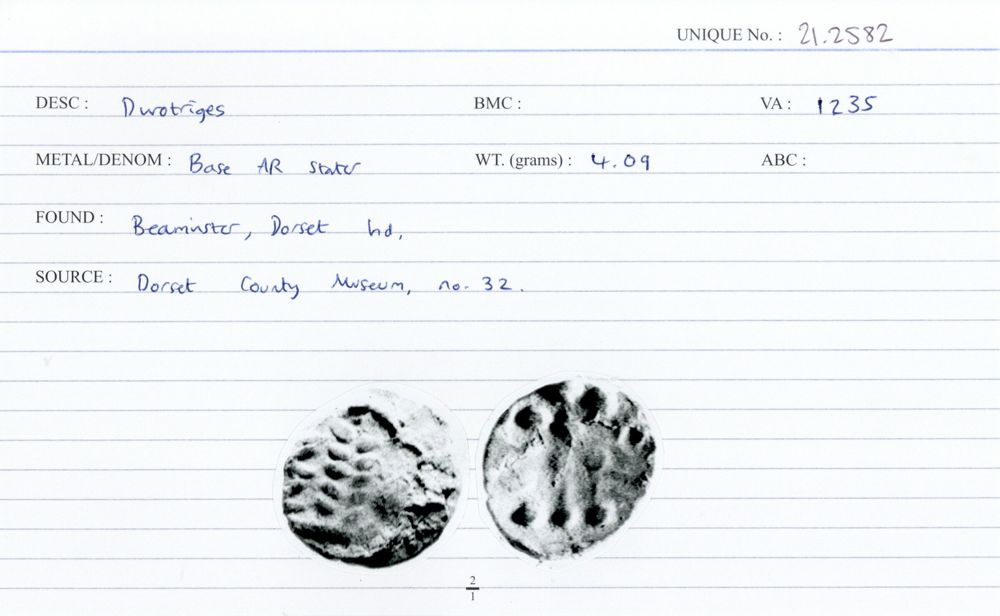 UNIQUE No. : 21.2582
DESC : Durotriges BMC : VA : 1235
METAL/DENOM : Base AR stater WT. (grams) : 4.09 ABC :
FOUND : Beaminster, Dorset hd,
SOURCE : Dorset County Museum, no. 32.
2
1